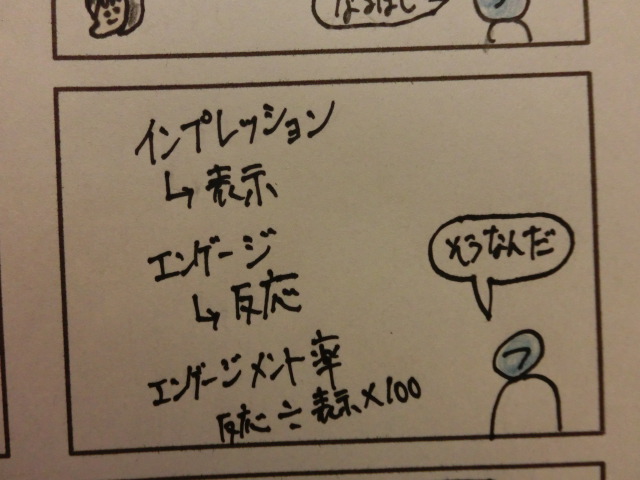 なるほど
インプレッション
↳表示
エンゲージ
↳反応
そうなんだ
エンゲージメント率
反応÷表示×100